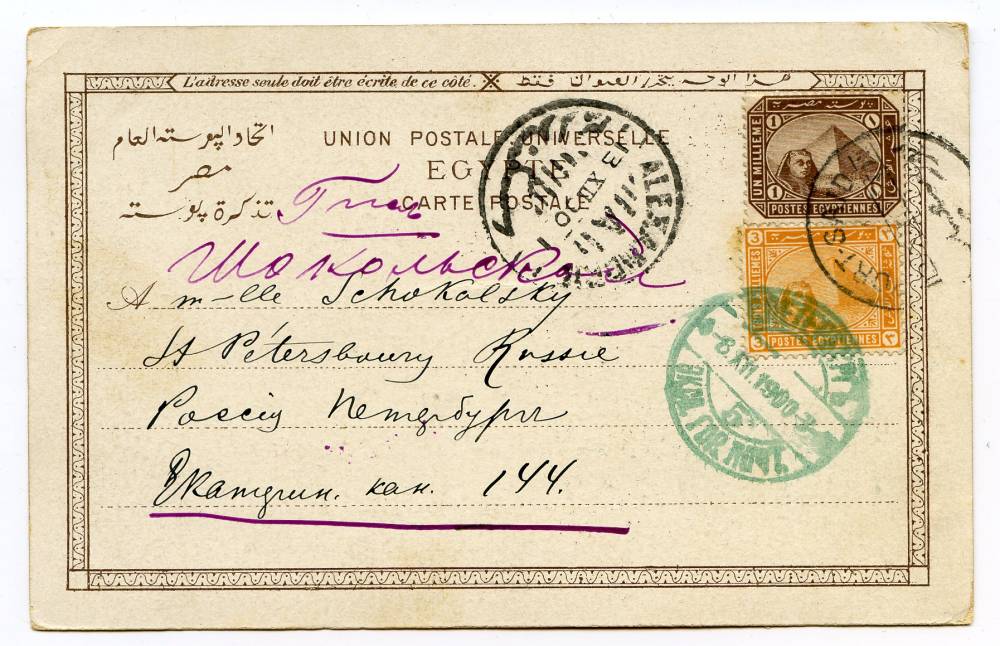 L'adresse seule doit être écrite de ce côté. هذا الوجه يحرر العنوان فقط
UNION POSTALE UNIVERSELLE اتحاد البوسته العام
EGYPTE مصر
CARTE POSTALE تذكرة بوسته
Шокольская
A m-lle Schokalsky
St Pétersbourg Russie
Россія Петербургъ
Екатерин. кан. 144.
UN MILLIEME
1
POSTES EGYPTIENNES
3
POSTES EGYPTIENNES
ALEXANDRIE
13 XII 00
8.XII.1900
5